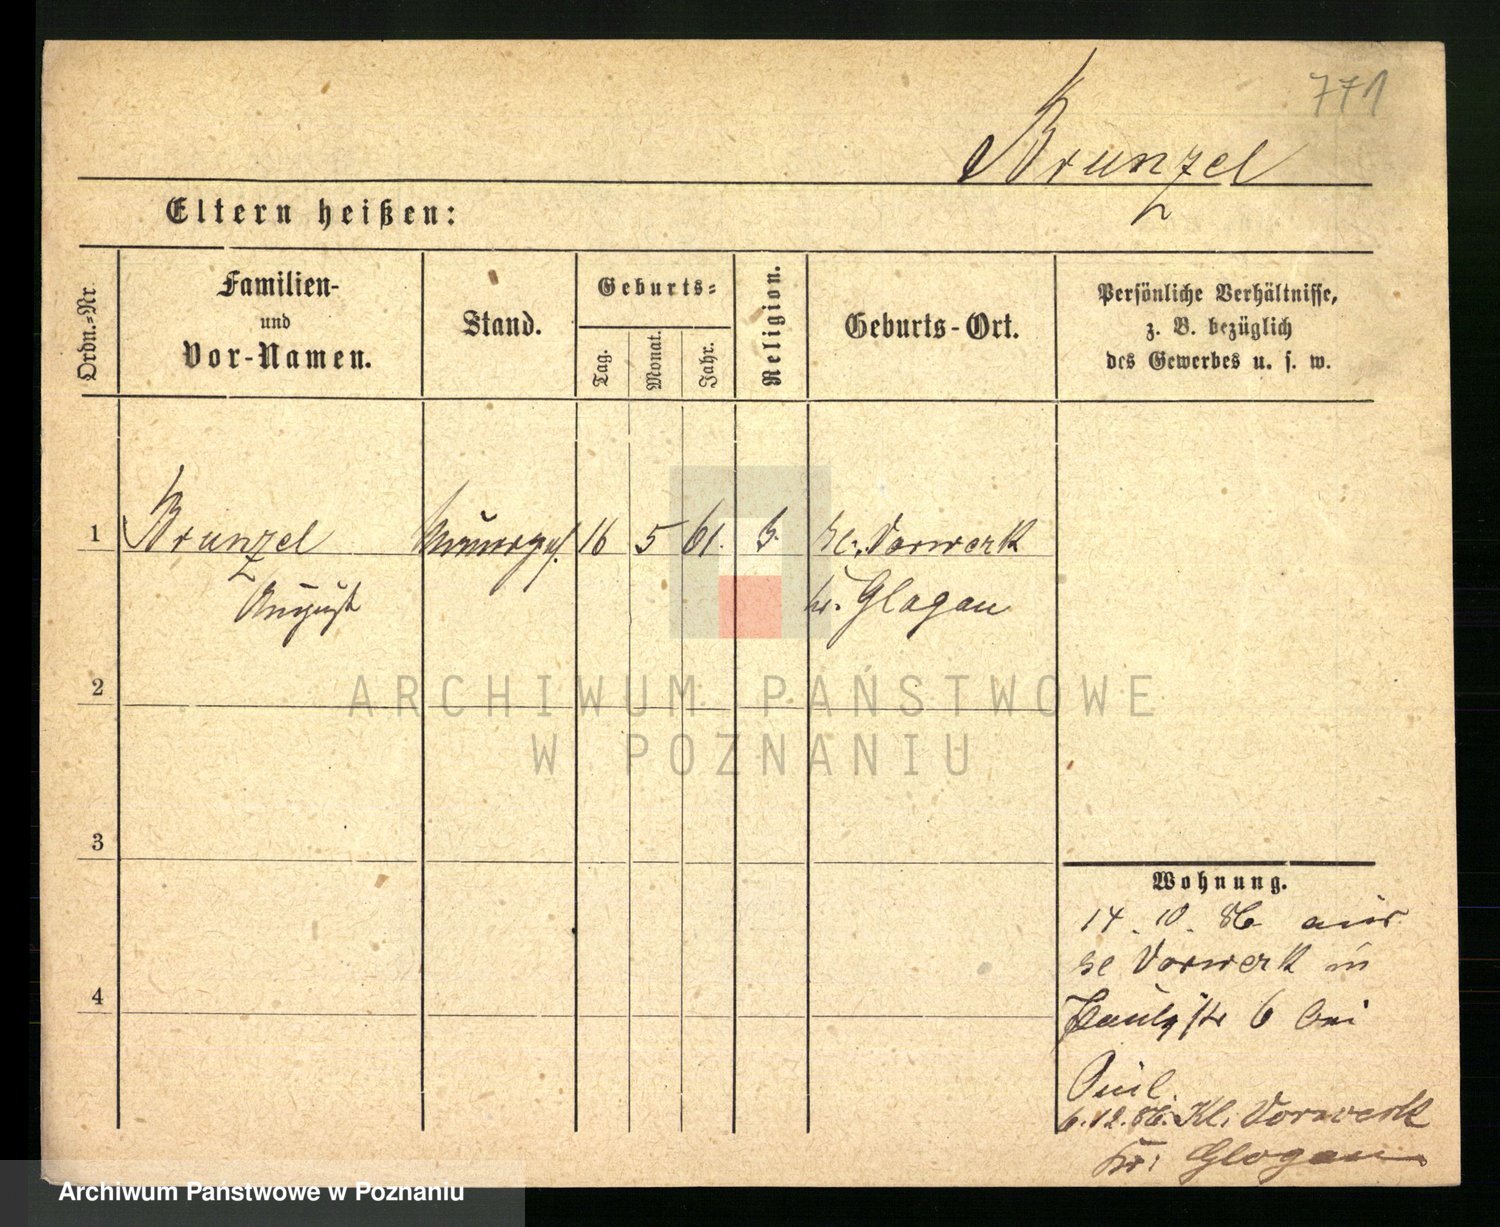 771
Brunzel
Eltern heißen:
Ordn.-Nr.
Familien-
und
Vor-Namen.
Stand.
Geburts-
Tag.
Monat.
Jahr.
Religion.
Geburts-Ort.
Persönliche Verhältnisse,
z. B. bezüglich
des Gewerbes u. s. w.
1 Brunzel Maurerges. 16 5 61. Kl. Vorwerk
August Kr. Glogau
2
3
4
Wohnung.
14. 10. 86 aus
Kl Vorwerk in
Paulistr 6 bei
6.12.86. Kl. Vorwerk
Kr. Glogau
ARCHIWUM PAŃSTWOWE
W POZNANIU
Archiwum Państwowe w Poznaniu